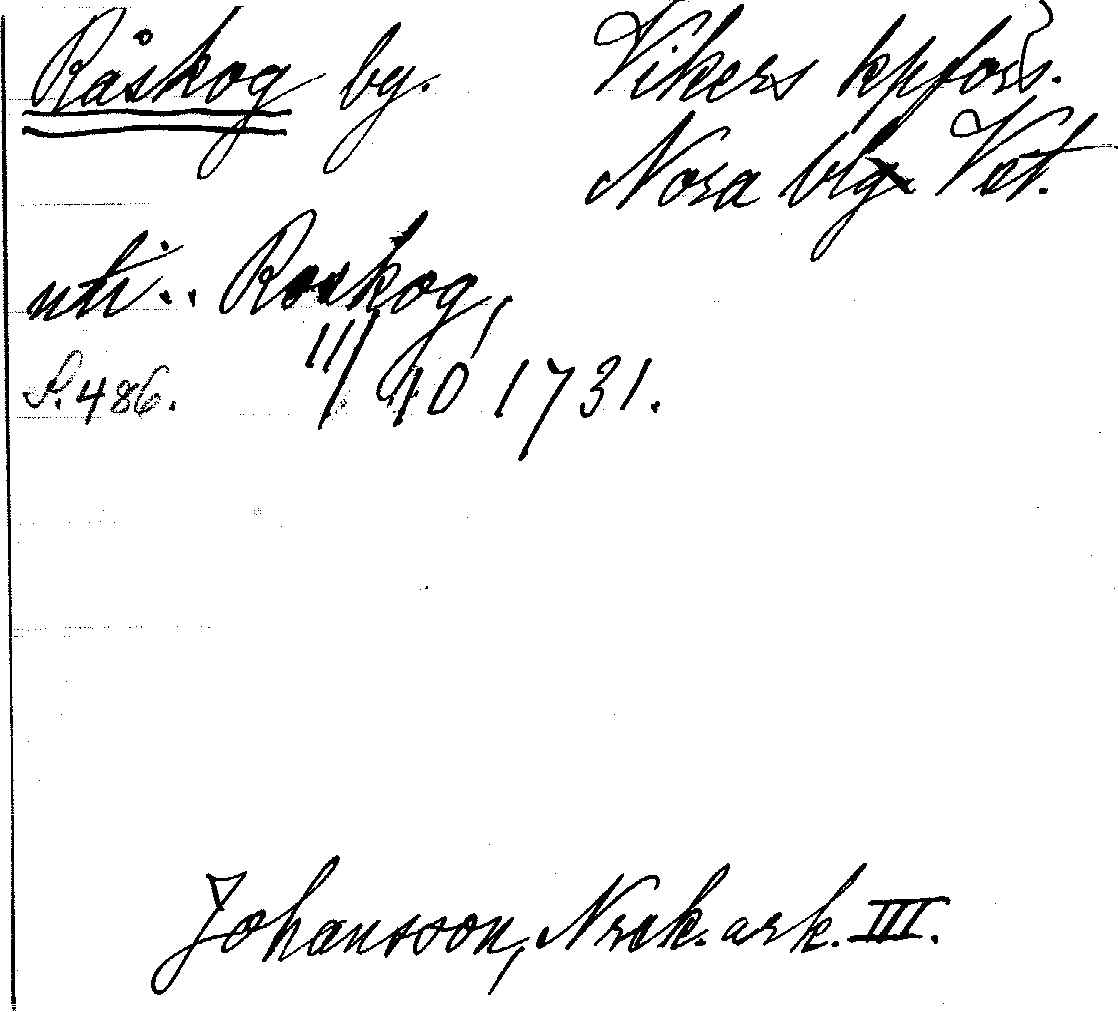 Råskog by. Vikers kpförs.
Nora blg. Vst.
uti.. Roskog,
S. 486. 11/10 1731.
Johansson, Nrek. ark. III.